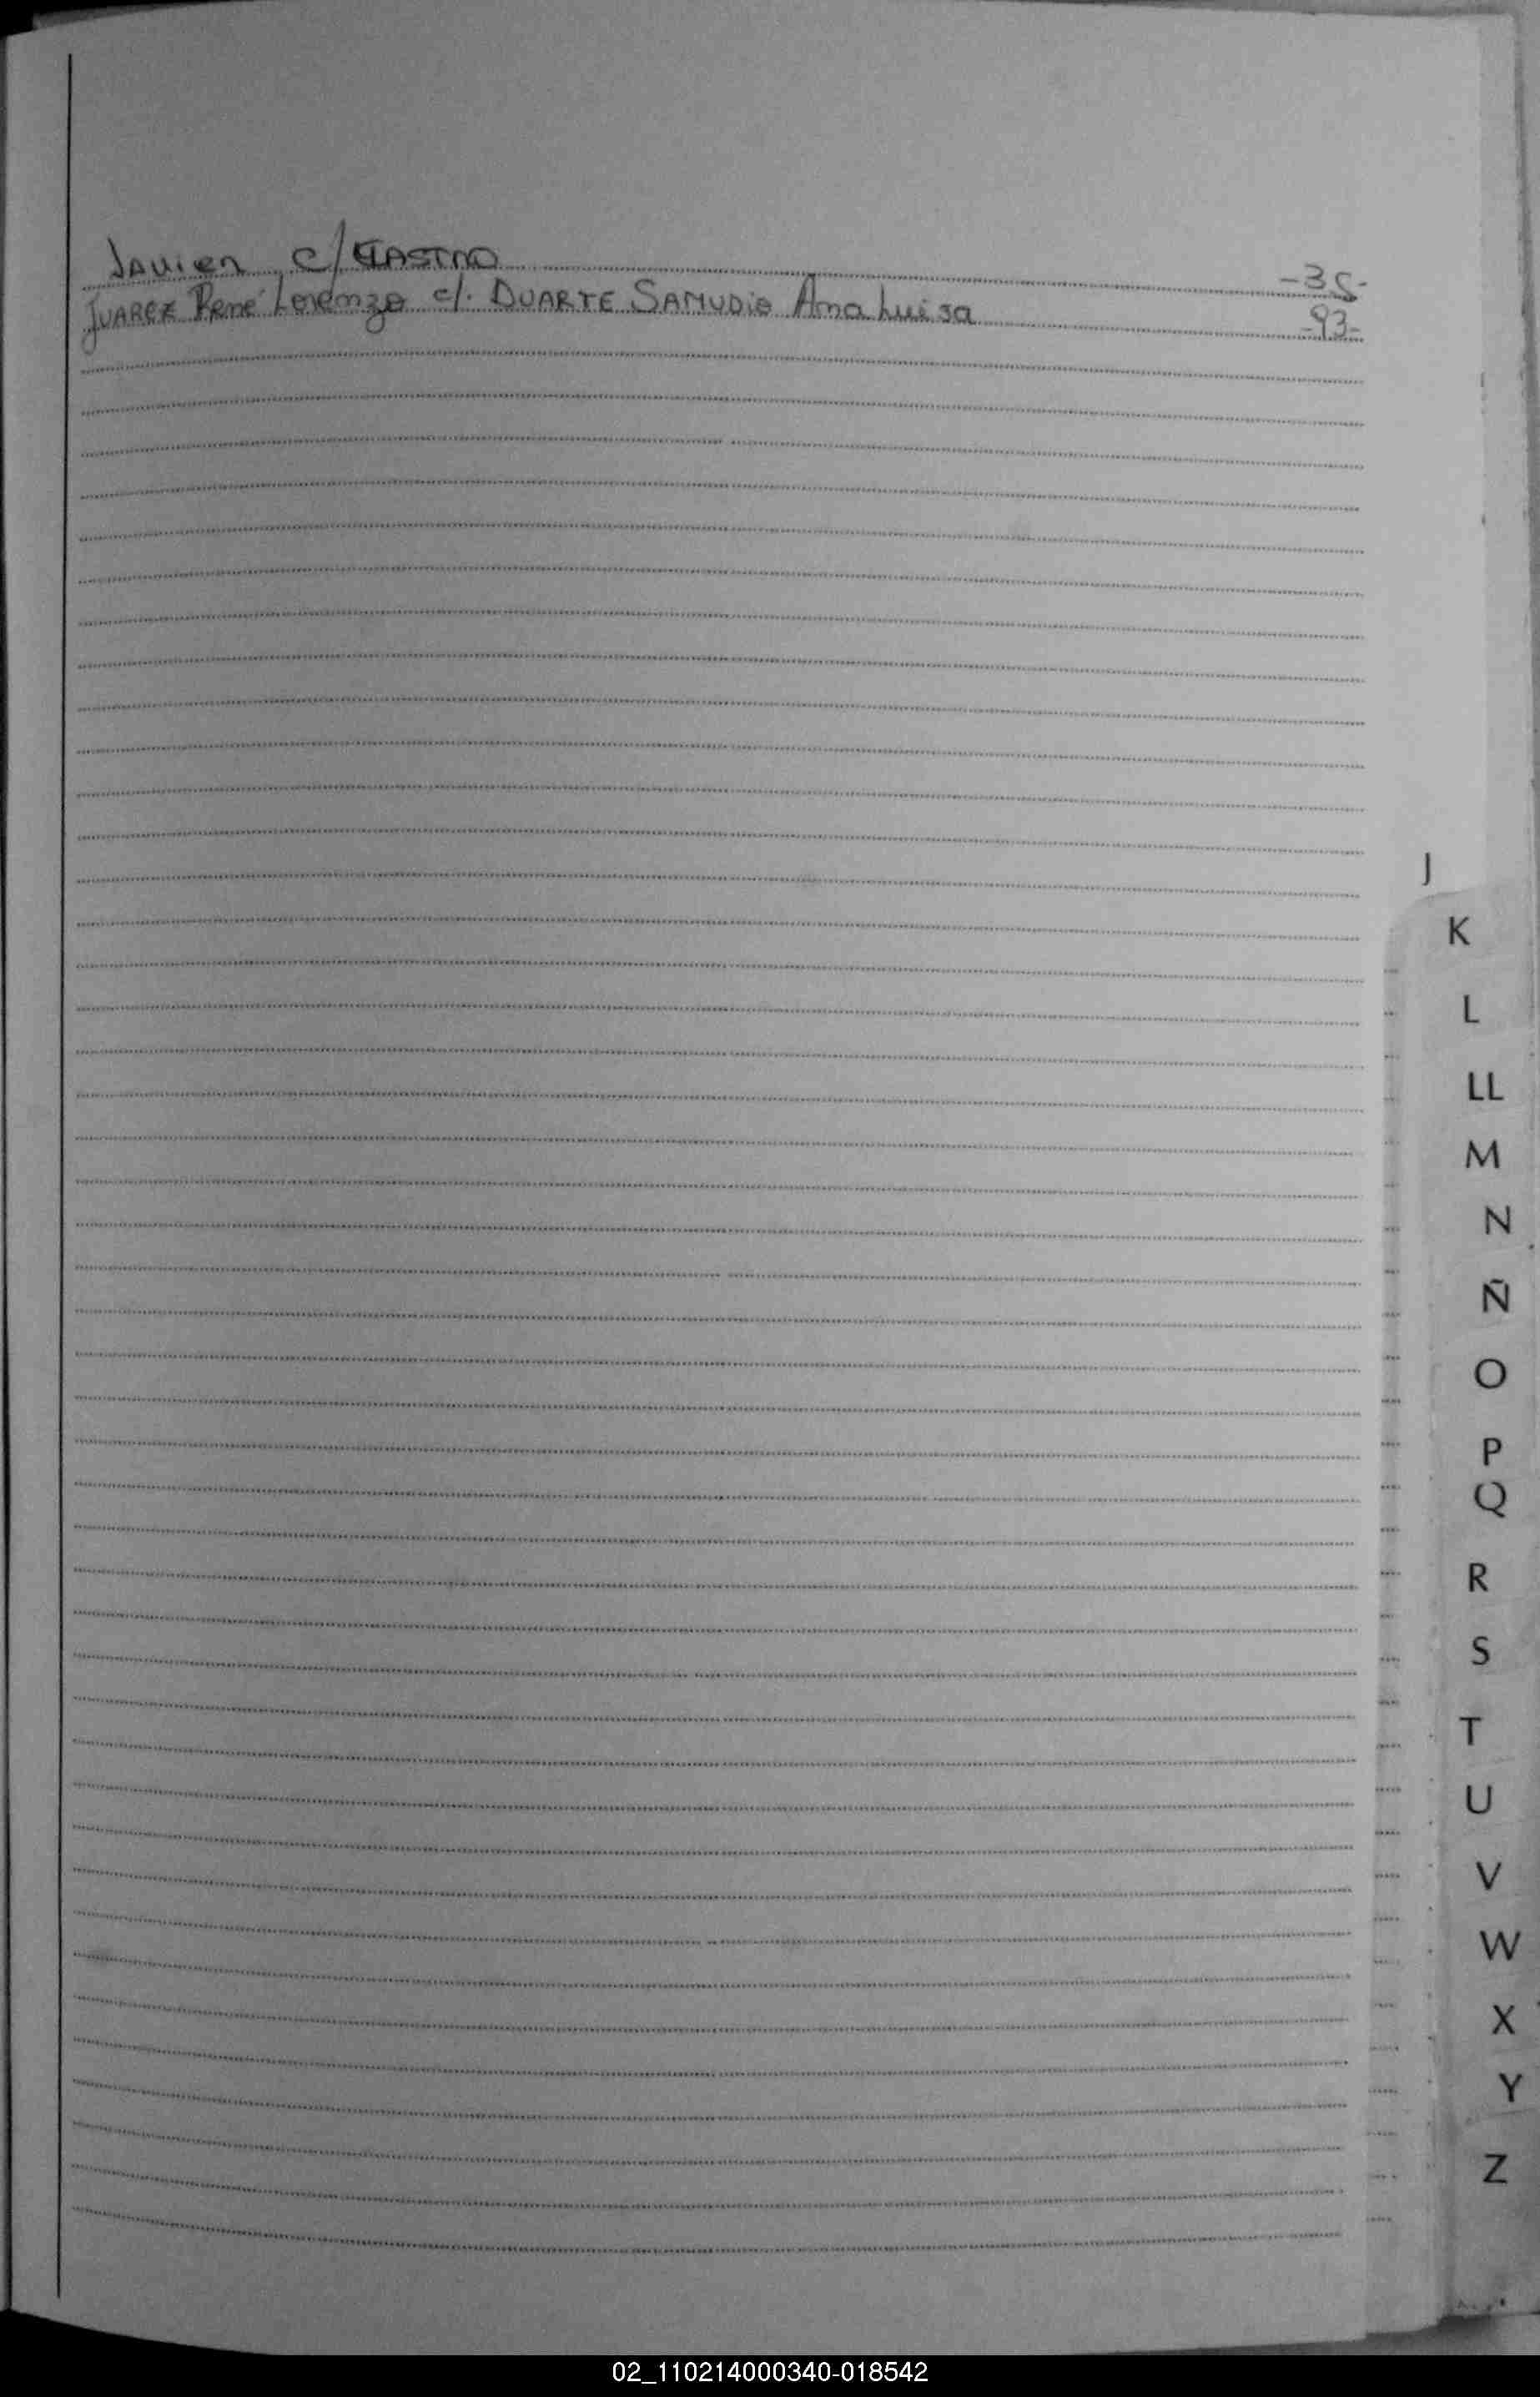 Javier c/ CASTRO -35-
JUAREZ René Lorenzo c/. DUARTE SAMUDIO Ana Luisa -93-
J
K
L
LL
M
N
Ñ
O
P
Q
R
S
T
U
V
W
X
Y
Z
02_110214000340-018542